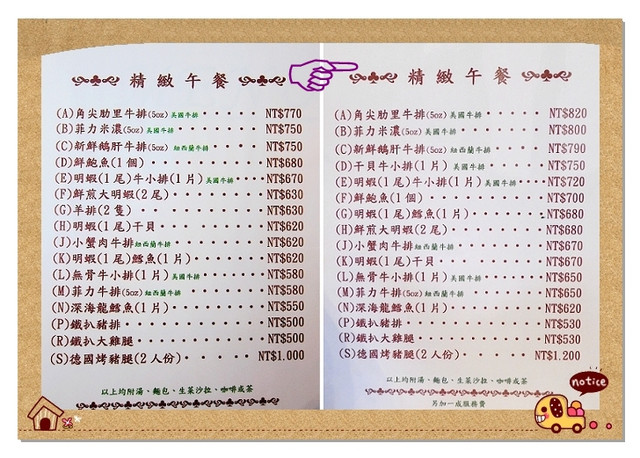 精緻午餐
(A)角尖肋里牛排(5oz)美國牛排······NT$770
(B)菲力米濃(5oz)美國牛排·······NT$750
(C)新鮮鵝肝牛排(5oz) 紐西蘭牛排····NT$750
(D)鮮鮑魚(1個)··········NT$680
(E)明蝦(1尾)牛小排(1片)美國牛排····NT$670
(F)鮮煎大明蝦(2尾)········NT$630
(G)羊排(2隻)···········NT$630
(H)明蝦(1尾)干貝·········NT$620
(J)小蟹肉牛排紐西蘭牛排·······NT$620
(K)明蝦(1尾)鱈魚(1片)······NT$620
(L)無骨牛小排(1片)美國牛排·····NT$580
(M)菲力牛排(5oz)紐西蘭牛排·····NT$580
(N)深海龍鱈魚(1片)········NT$550
(P)鐵扒豬排············NT$500
(R)鐵扒大雞腿···········NT$500
(S)德國烤豬腿(2人份)·····NT$1.000
以上均附湯、麵包、生菜沙拉、咖啡或茶
精緻午餐
(A)角尖肋里牛排(5oz)美國牛排·····NT$820
(B)菲力米濃(5oz)美國牛排······NT$800
(C)新鮮鵝肝牛排(5oz)紐西蘭牛排····NT$790
(D)干貝牛小排(1片)美國牛排·····NT$750
(E)明蝦(1尾)牛小排(1片)美國牛排···NT$720
(F)鮮鮑魚(1個)··········NT$700
(G)明蝦(1尾)鱈魚(1片)······NT$680
(H)鮮煎大明蝦(2尾)········NT$680
(J)小蟹肉牛排紐西蘭牛排·······NT$670
(K)明蝦(1尾)干貝·········NT$670
(L)無骨牛小排(1片)美國牛排·····NT$650
(M)菲力牛排(5oz)紐西蘭牛排·····NT$650
(N)深海龍鱈魚(1片)········NT$620
(P)鐵扒豬排············NT$530
(R)鐵扒大雞腿···········NT$530
(S)德國烤豬腿(2人份)·····NT$1.200
以上均附湯、麵包、生菜沙拉、咖啡或茶
另加一成服務費
notice